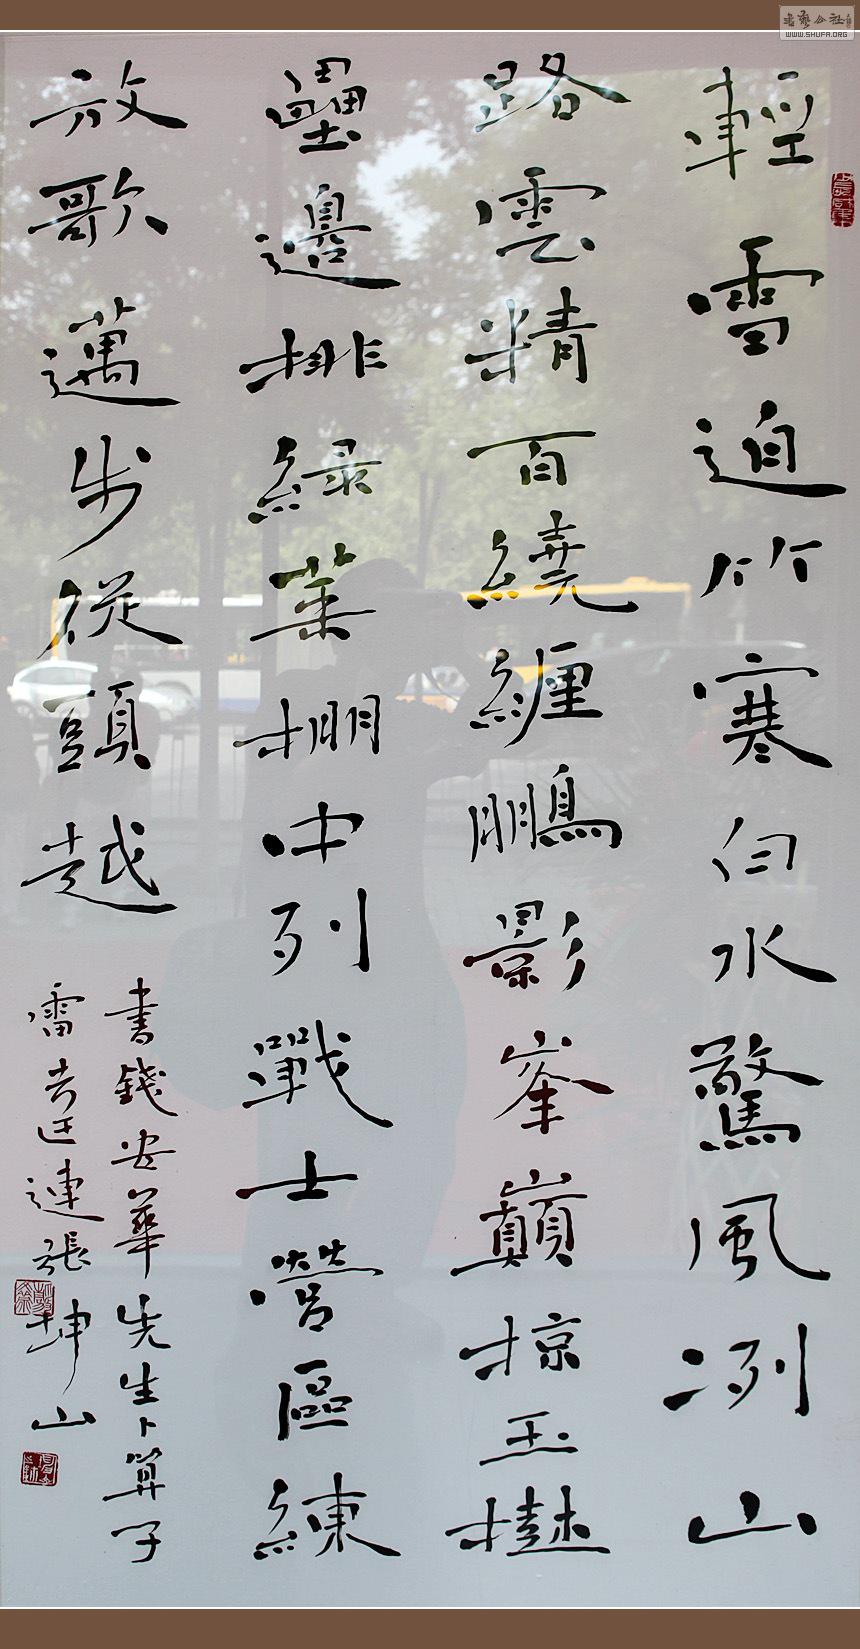 輕雪迫竹寒白水驚風冽山
路雲精百繞纏鵬影峯巔掠玉樾
壘邊排綠葉棚中列戰士營區練
放歌邁步從頭越
書錢安華先生卜算子
雷去廷連張坤山
書藝公社
WWW.SHUFA.ORG